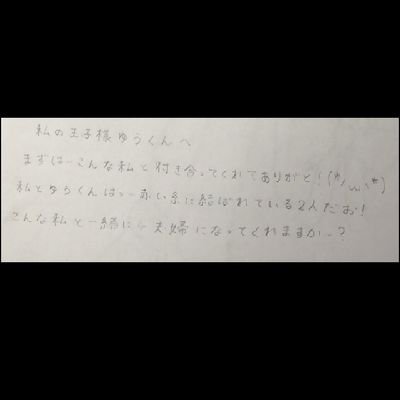 私の王子様ゆうくんへ
まずは…こんな私と付き合ってくれてありがと！(*ﾉωﾉ*)
私とゆうくんは…赤い糸に結ばれている2人だお！
こんな私と一緒に… 夫婦になってくれますか…？